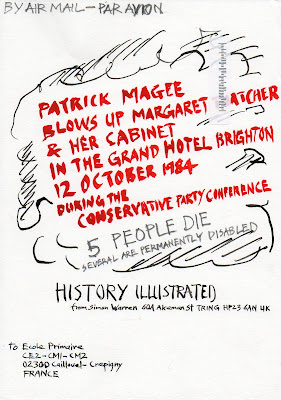 BY AIR MAIL - PAR AVION
PATRICK MAGEE
BLOWS UP MARGARET ATCHER
& HER CABINET
IN THE GRAND HOTEL BRIGHTON
12 OCTOBER 1984
DURING THE
CONSERVATIVE PARTY CONFERENCE
5 PEOPLE DIE
SEVERAL ARE PERMANENTLY DISABLED
HISTORY ILLUSTRATED
from Simon Warren 60A Akeman St TRING HP23 6AN UK
To Ecole Primaire
CE2-CM1-CM2
02300 Caillouel-Crepigny
FRANCE